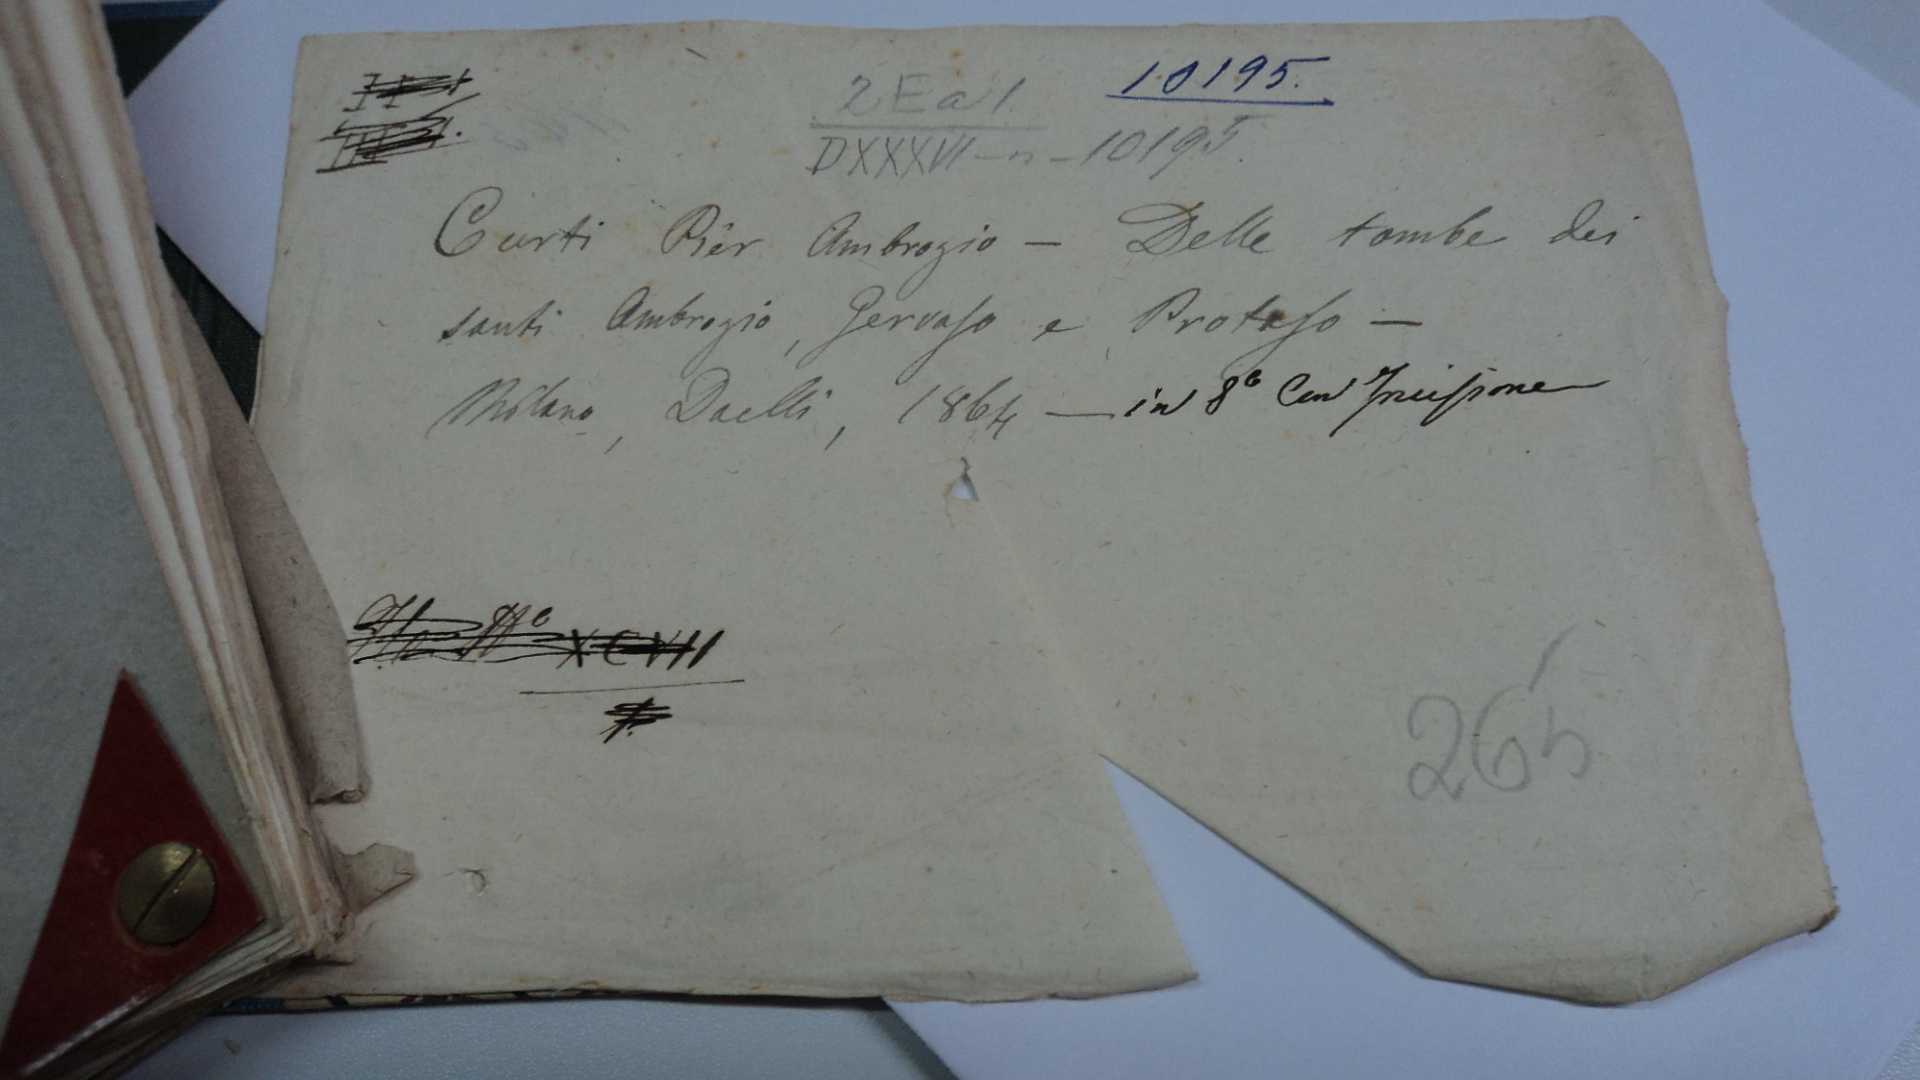 2 E a 1. 10195.
DXXXVI - n - 10195.
Curti Pier Ambrogio — Delle tombe dei
santi Ambrogio, Gervaso e Protaso —
Milano, Daelli, 1864 — in 8° Con Incisione
XCVII
265